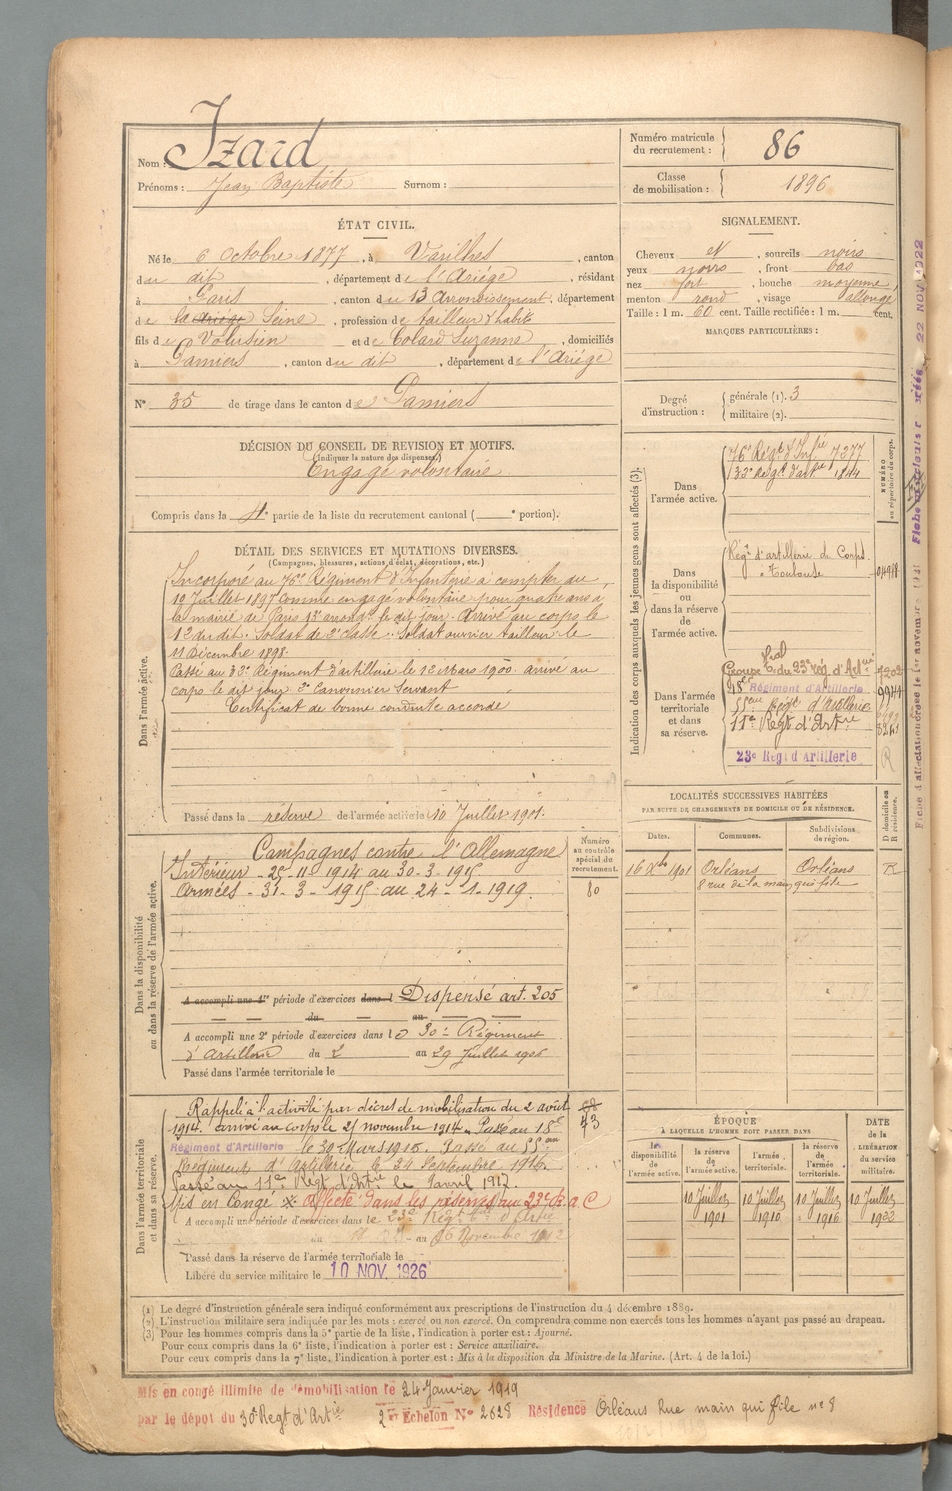 Nom : Izard
Prénoms : Jean Baptiste Surnom :
Numéro matricule du recrutement : 86
Classe de mobilisation : 1896
ÉTAT CIVIL.
Né le 6 Octobre 1877, à Varilhes, canton
du dit, département de l'Ariége, résidant
à Paris, canton du 13 Arrondissement, département
de la Ariege Seine, profession de tailleur d'habits
fils de Volusien et de Colard Suzanne, domiciliés
à Pamiers, canton du dit, département de l'Ariége
N° 35 de tirage dans le canton de Pamiers
SIGNALEMENT.
Cheveux et, sourcils noirs
yeux noirs, front bas
nez fort, bouche moyenne
menton rond, visage allongé
Taille : 1 m. 60 cent. Taille rectifiée : 1 m. cent.
MARQUES PARTICULIÈRES :
Degré d'instruction : générale (1). 3
militaire (2).
DÉCISION DU CONSEIL DE REVISION ET MOTIFS.
(Indiquer la nature des dispenses.)
Engagé volontaire
Compris dans la 4e partie de la liste du recrutement cantonal ( e portion).
DÉTAIL DES SERVICES ET MUTATIONS DIVERSES.
(Campagnes, blessures, actions d'éclat, décorations, etc.)
Dans l'armée active.
Incorporé au 76e Régiment d'Infanterie à compter du
10 Juillet 1897 comme engagé volontaire pour quatre ans à
la mairie de Paris 13e arrondt le dit jour. Arrivé au corps le
12 du dit. Soldat de 2e classe. Soldat ouvrier tailleur le
11 Décembre 1898.
Passé au 33e Régiment d'artillerie le 12 Mars 1900 arrivé au
corps le dit jour 2e Canonnier Servant
Certificat de bonne conduite accordé
Passé dans la réserve de l'armée active le 10 Juillet 1901.
Indication des corps auxquels les jeunes gens sont affectés (3).
NUMÉRO au répertoire du corps.
Dans l'armée active.
76e Régt d'Infie 7277
33e Régt d'artie 1844
Dans la disponibilité ou dans la réserve de l'armée active.
Régt d'artillerie de Corps
à Toulouse
Dans l'armée territoriale et dans sa réserve.
Groupe du 23e rég. d'Artie
18e Régiment d'Artillerie
55eme Régt d'Artillerie
11e Régt d'Artrie
23e Régt d'Artillerie R
Dans la disponibilité ou dans la réserve de l'armée active.
Campagnes contre l'Allemagne
Intérieur - 25-11-1914 au 30-3-1915
Armées - 31-3-1915 au 24-1-1919.
Numéro au contrôle spécial du recrutement.
80
A accompli une 1re période d'exercices dans l Dispensé art. 205
du au
A accompli une 2e période d'exercices dans le 30e Régiment
d'Artillerie du 2 au 29 Juillet 1906
Passé dans l'armée territoriale le
LOCALITÉS SUCCESSIVES HABITÉES
PAR SUITE DE CHANGEMENTS DE DOMICILE OU DE RÉSIDENCE.
Dates. Communes. Subdivisions de région. D domicile ou R résidence.
16 Xbre 1901 Orléans Orléans R
8 rue de la main qui file
Dans l'armée territoriale et dans sa réserve.
Rappelé à l'activité par décret de mobilisation du 2 août
1914. arrivé au corps le 25 novembre 1914. Passé au 18e
Régiment d'Artillerie le 30 Mars 1915. Passé au 55eme
Régiment d'Artillerie le 24 Septembre 1916.
Passé au 11e Régt d'Artrie le 1 avril 1917.
Mis en Congé x affecté dans les réserves au 23e R.a.C
A accompli une période d'exercices dans le 23e Régt d'Artie
au 26 Novembre 1912
Passé dans la réserve de l'armée territoriale le
Libéré du service militaire le 10 NOV. 1926
68
43
ÉPOQUE
A LAQUELLE L'HOMME DOIT PASSER DANS
la disponibilité de l'armée active.
la réserve de l'armée active.
l'armée territoriale.
la réserve de l'armée territoriale.
DATE de la LIBÉRATION du service militaire.
10 Juillet 1901
10 Juillet 1910
10 Juillet 1916
10 Juillet 1922
(1) Le degré d'instruction générale sera indiqué conformément aux prescriptions de l'instruction du 4 décembre 1889.
(2) L'instruction militaire sera indiquée par les mots : exercé ou non exercé. On comprendra comme non exercés tous les hommes n'ayant pas passé au drapeau.
(3) Pour les hommes compris dans la 5e partie de la liste, l'indication à porter est : Ajourné.
Pour ceux compris dans la 6e liste, l'indication à porter est : Service auxiliaire.
Pour ceux compris dans la 7e liste, l'indication à porter est : Mis à la disposition du Ministre de la Marine. (Art. 4 de la loi.)
Mis en congé illimité de démobilisation le 24 Janvier 1919
par le dépot du 30e Regt d'Artie 2me Échelon N° 2628 Résidence Orléans Rue main qui file n° 8